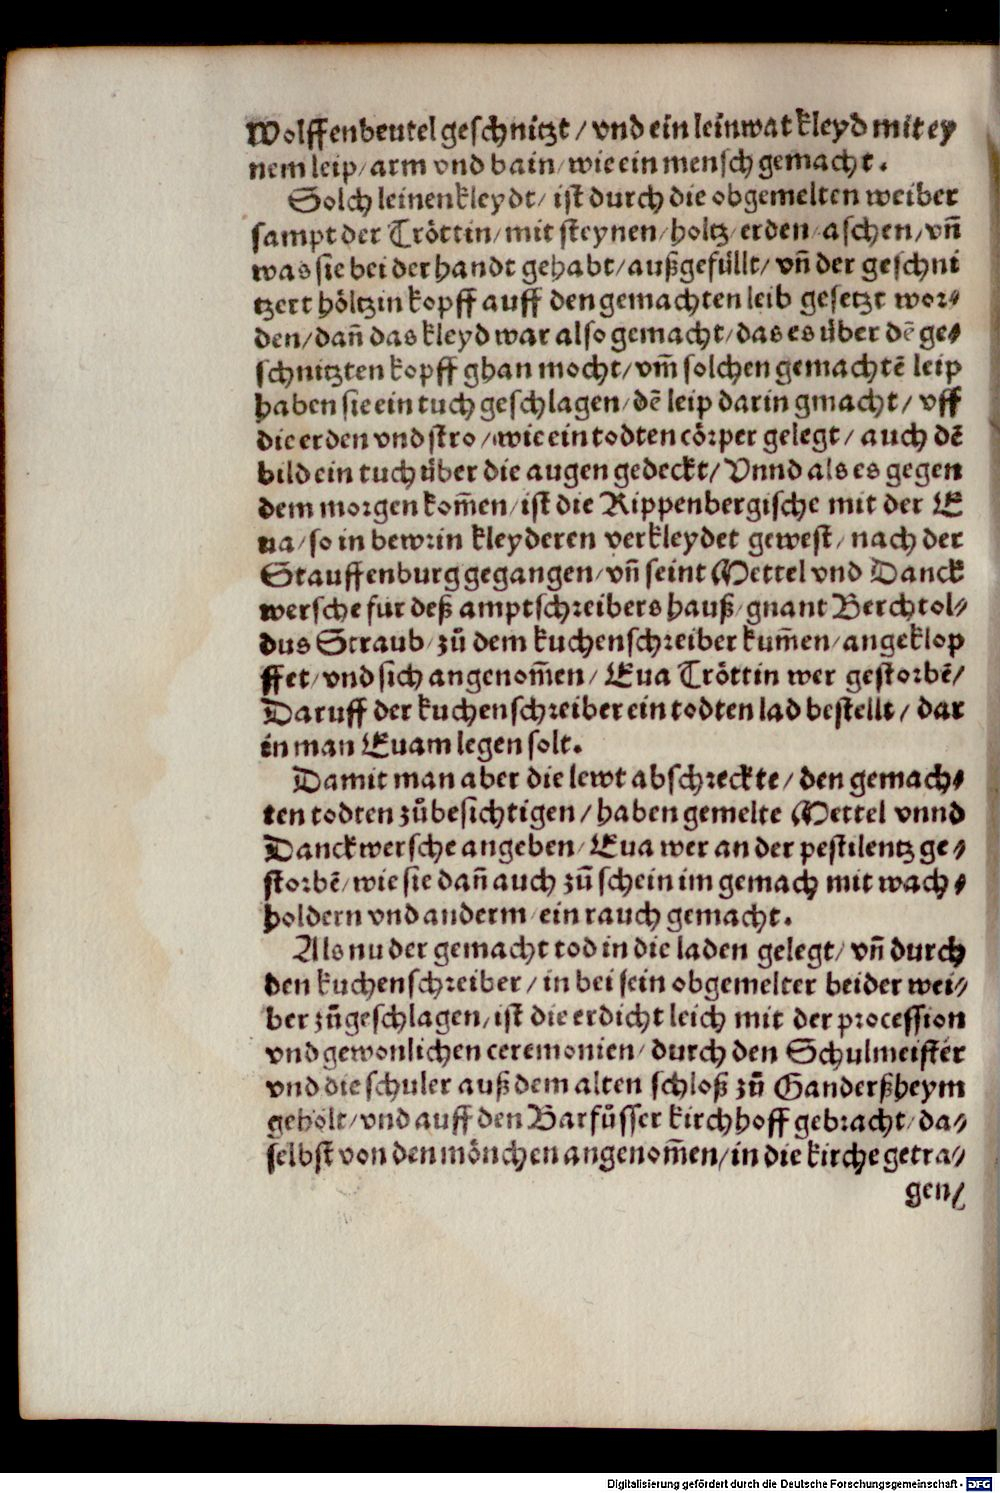 Wolffenbeutel geschnitzt / vnd ein leinwat kleyd mit ey
nem leip / arm vnd bain / wie ein mensch gemacht.
Solch leinenkleydt / ist durch die obgemelten weiber
sampt der Tröttin / mit steynen / holtz / erden / aschen / vñ
was sie bei der handt gehabt / außgefüllt / vñ der geschni
tzert höltzin kopff auff den gemachten leib gesetzt wor⸗
den / dañ das kleyd war also gemacht / das es über dē ge⸗
schnitzten kopff ghan mocht / vm̄ solchen gemachtē leip
haben sie ein tuch geschlagen / dē leip darin gmacht / vff
die erden vnd stro / wie ein todten cörper gelegt / auch dē
bild ein tuch über die augen gedeckt / Vnnd als es gegen
dem morgen kom̄en / ist die Rippenbergische mit der E
ua / so in bewrin kleyderen verkleydet gewest / nach der
Stauffenburg gegangen / vñ seint Mettel vnd Danck
wersche für deß amptschreibers hauß / gnant Berchtol⸗
dus Straub / zů dem kuchenschreiber kum̄en / angeklop
ffet / vnd sich angenom̄en / Eua Tröttin wer gestorbē /
Daruff der kuchenschreiber ein todten lad bestellt / dar
in man Euam legen solt.
Damit man aber die lewt abschreckte / den gemach⸗
ten todten zůbesichtigen / haben gemelte Mettel vnnd
Danckwersche angeben / Eua wer an der pestilentz ge⸗
storbē / wie sie dañ auch zů schein im gemach mit wach⸗
holdern vnd anderm / ein rauch gemacht.
Als nu der gemacht tod in die laden gelegt / vñ durch
den kuchenschreiber / in bei sein obgemelter beider wei⸗
ber zůgeschlagen / ist die erdicht leich mit der procession
vnd gewonlichen ceremonien / durch den Schulmeister
vnd die schuler auß dem alten schloß zů Ganderßheym
geholt / vnd auff den Barfůsser kirchhoff gebracht / da⸗
selbst von den mönchen angenom̄en / in die kirche getra⸗
gen /
Digitalisierung gefördert durch die Deutsche Forschungsgemeinschaft - DFG